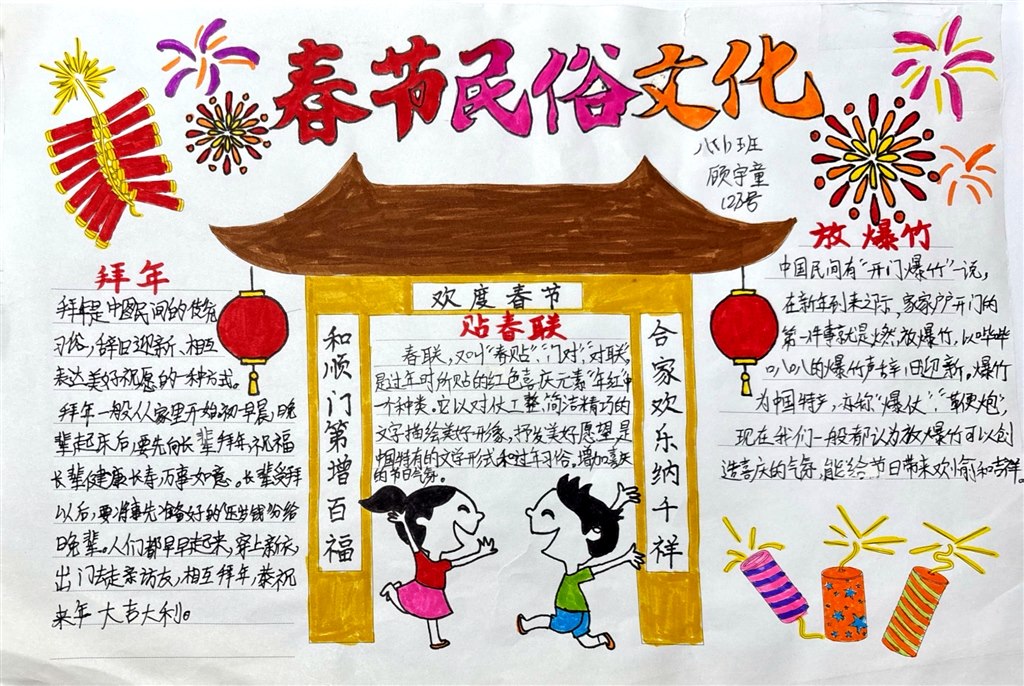 春节民俗文化
八(1)班
顾宇童
12号
拜年
拜年是中国民间的传统
习俗,辞旧迎新、相互
表达美好祝愿的一种方式。
拜年一般从家里开始初一早晨,晚
辈起床后,要先向长辈拜年,祝福
长辈健康长寿,万事如意。长辈受拜
以后,要将事先准备好的压岁钱分给
晚辈。人们都早早起来,穿上新衣,
出门去走亲访友,相互拜年,恭祝
来年大吉大利。
欢度春节
和顺门第增百福
合家欢乐纳千祥
贴春联
春联,又叫“春贴”、“门对”、“对联”,
是过年时所贴的红色喜庆元素“年红”中
一个种类。它以对仗工整、简洁精巧的
文字描绘美好形象,抒发美好愿望,是
中国特有的文学形式和过年习俗,增加喜庆
的节日气氛。
放爆竹
中国民间有“开门爆竹”一说,
在新年到来之际,家家户户开门的
第一件事就是燃放爆竹,以哔哔
叭叭的爆竹声辞旧迎新。爆竹
为中国特产,亦称“爆仗”、“鞭炮”,
现在我们一般都认为放爆竹可以创
造喜庆的气氛,能给节日带来欢愉和吉祥。